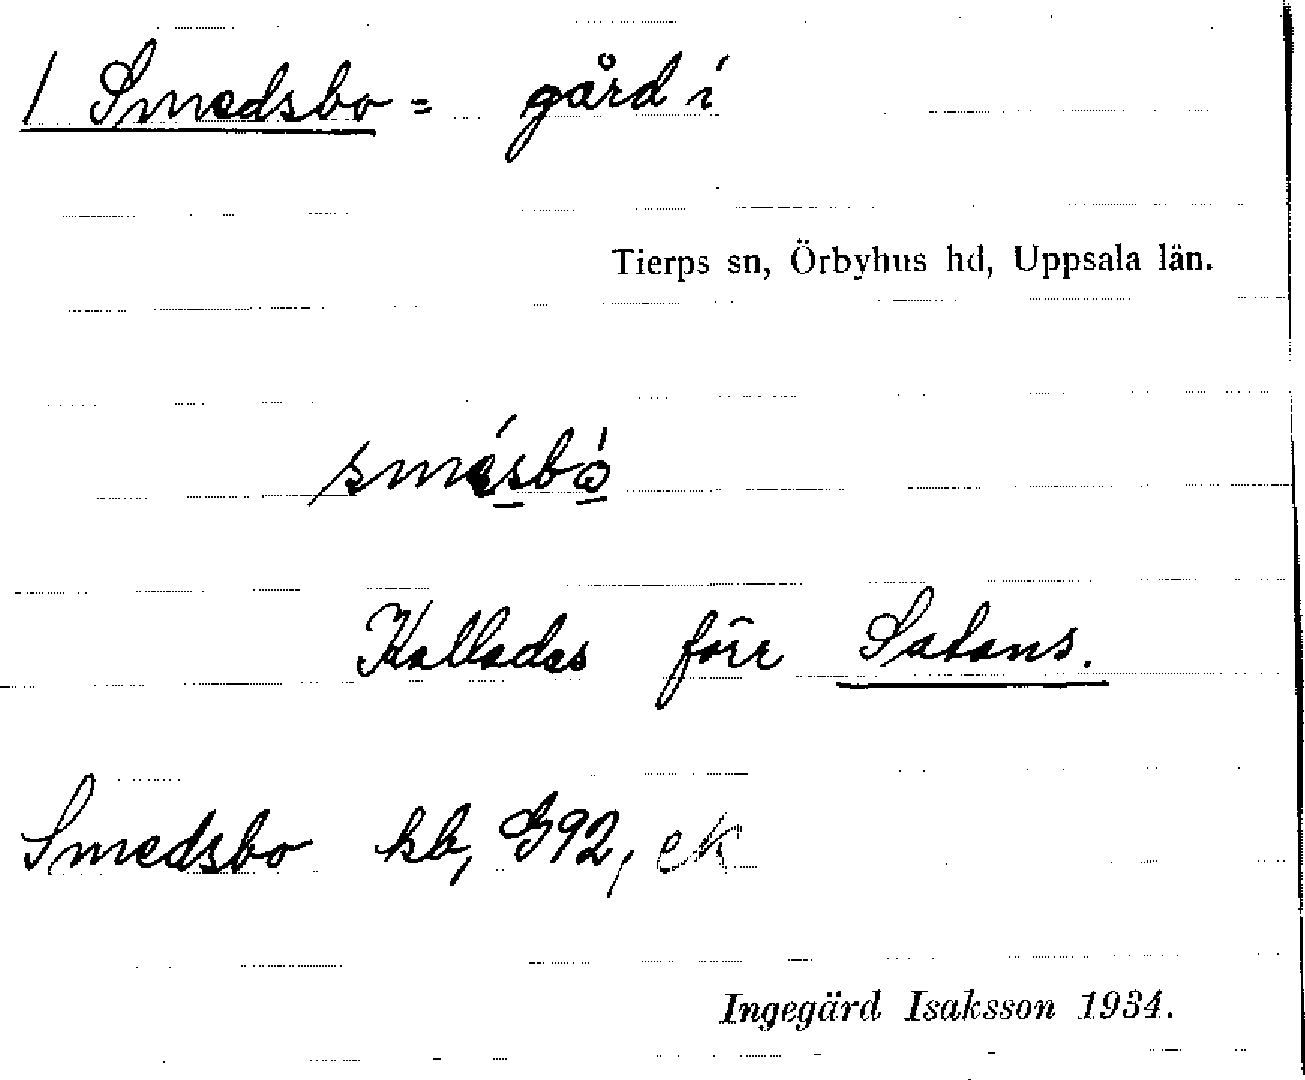 1 Smedsbo = gård i
Tierps sn, Örbyhus hd, Uppsala län.
smésbó
Kallades förr Satans.
Smedsbo kb, G92, ek
Ingegärd Isaksson 1934.